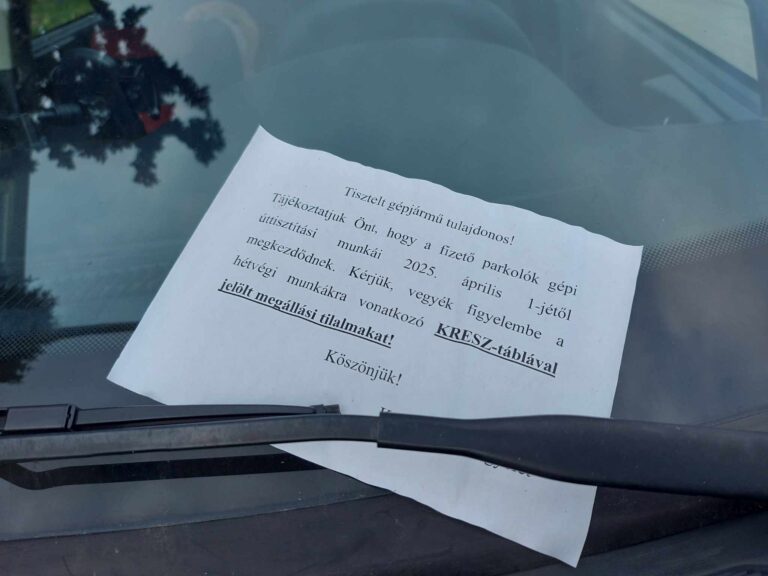 Tisztelt gépjármű tulajdonos!
Tájékoztatjuk Önt, hogy a fizető parkolók gépi
úttisztítási munkái 2025. április 1-jétől
megkezdődnek. Kérjük, vegyék figyelembe a
hétvégi munkákra vonatkozó KRESZ-táblával
jelölt megállási tilalmakat!
Köszönjük!